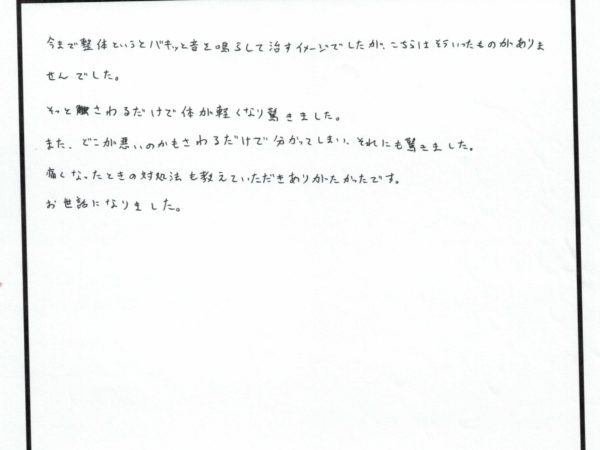 今まで整体というとバキッと音を鳴らして治すイメージでしたが、こちらはそういったものがありま
せんでした。
そっとさわるだけで体が軽くなり驚きました。
また、どこが悪いのかもさわるだけで分かってしまい、それにも驚きました。
痛くなったときの対処法も教えていただきありがたかったです。
お世話になりました。